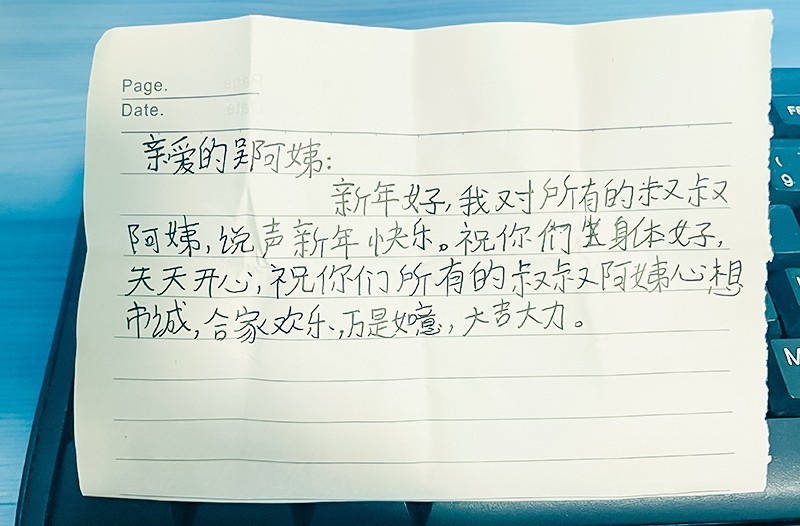 Page.
Date.
亲爱的吴阿姨:
新年好,我对所有的叔叔
阿姨,说声新年快乐。祝你们身体好,
天天开心,祝你们所有的叔叔阿姨心想
市城,合家欢乐,万是如意,大吉大力。